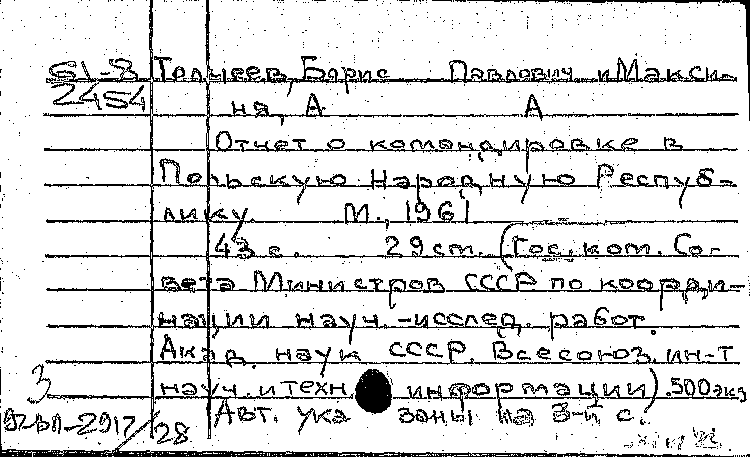 61-8 Толчеев, Борис Павлович и Макси-
2454 ня, А А
Отчет о командировке в
Польскую Народную Респуб-
лику. М., 1961
43 с. 29 см. (Гос. ком. Со-
вета Министров СССР по коорди-
нации науч.-исслед. работ.
Акад. наук СССР. Всесоюз. ин-т
3 науч. и техн. информации). 500 экз
Авт. ука заны на 3-й с.
28